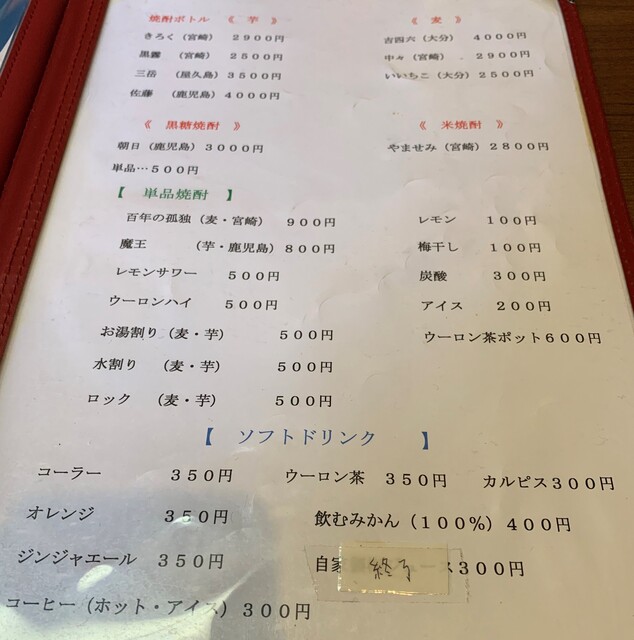 焼酎ボトル 《 芋 》
きろく（宮崎） 2900円
黒霧（宮崎） 2500円
三岳（屋久島）3500円
佐藤（鹿児島）4000円
《 麦 》
吉四六（大分） 4000円
中々（宮崎） 2900円
いいちこ（大分）2500円
《 黒糖焼酎 》
朝日（鹿児島）3000円
単品…500円
《 米焼酎 》
やませみ（宮崎）2800円
【 単品焼酎 】
百年の孤独（麦・宮崎） 900円
魔王 （芋・鹿児島）800円
レモンサワー 500円
ウーロンハイ 500円
お湯割り（麦・芋） 500円
水割り （麦・芋） 500円
ロック （麦・芋） 500円
レモン 100円
梅干し 100円
炭酸 300円
アイス 200円
ウーロン茶ポット600円
【 ソフトドリンク 】
コーラー 350円 ウーロン茶 350円 カルピス300円
オレンジ 350円 飲むみかん（100%）400円
ジンジャエール 350円 自家 終了 ース300円
コーヒー（ホット・アイス）300円